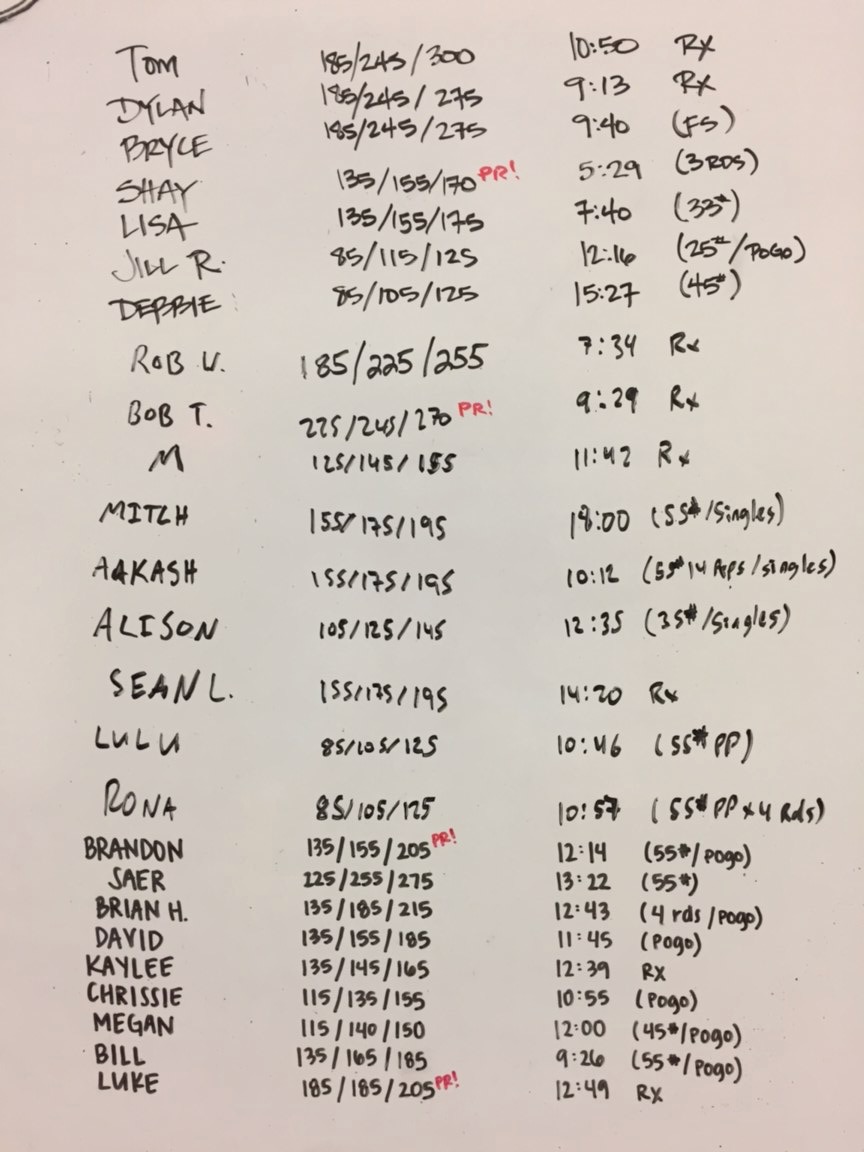 Tom 185/245/300 10:50 Rx
DYLAN 185/245/275 9:13 Rx
BRYCE 185/245/275 9:40 (FS)
SHAY 135/155/170 PR! 5:29 (3RDS)
LISA 135/155/175 7:40 (33#)
JILL R. 85/115/125 12:16 (25#/POGO)
DEBBIE 85/105/125 15:27 (45#)
ROB V. 185/225/255 7:34 Rx
BOB T. 225/245/270 PR! 9:29 Rx
M 125/145/155 11:42 Rx
MITCH 155/175/195 18:00 (55#/Singles)
AAKASH 155/175/195 10:12 (55# 14 Reps/singles)
ALISON 105/125/145 12:35 (35#/Singles)
SEAN L. 155/175/195 14:20 Rx
LULU 85/105/125 10:46 (55# PP)
RONA 85/105/125 10:57 (55# PP x 4 Rds)
BRANDON 135/155/205 PR! 12:14 (55#/pogo)
SAER 225/255/275 13:22 (55#)
BRIAN H. 135/185/215 12:43 (4 rds/pogo)
DAVID 135/155/185 11:45 (Pogo)
KAYLEE 135/145/165 12:39 Rx
CHRISSIE 115/135/155 10:55 (Pogo)
MEGAN 115/140/150 12:00 (45#/Pogo)
BILL 135/165/185 9:26 (55#/Pogo)
LUKE 185/185/205 PR! 12:49 Rx